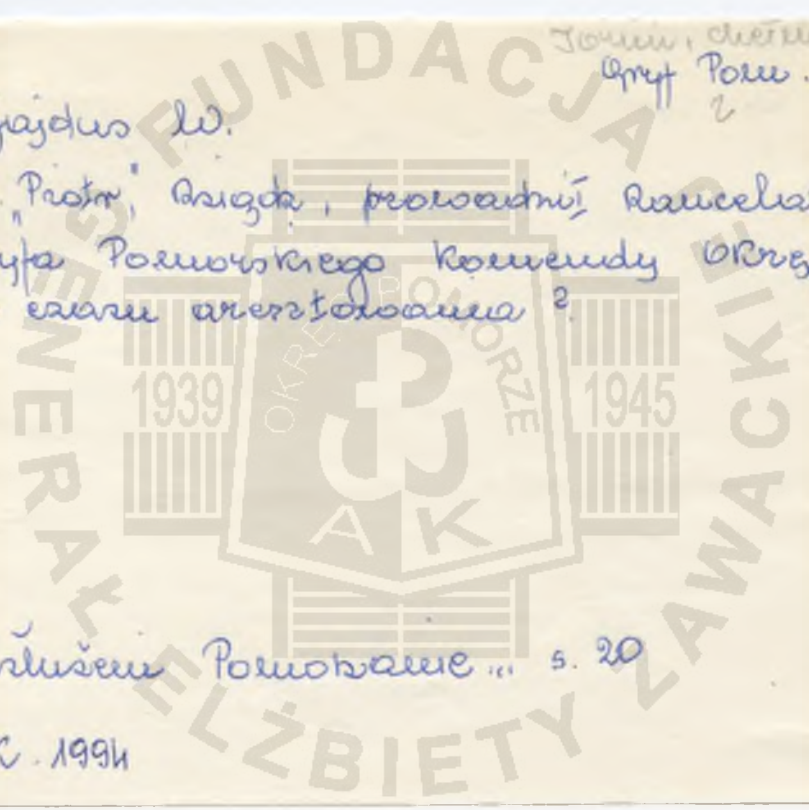 Toruń, chełm
Gryf Pom.
?
ajdus W.
"Piotr", Ksiądz, prowadził Kancela
yfa Pomorskiego Komendy Okrę
czasu aresztowania ?
służeni Pomorzanie... s. 20
X. 1994
FUNDACJA
GENERAŁ ELŻBIETY ZAWACKIEJ
OKRĘG POMORZE
1939
1945
A K